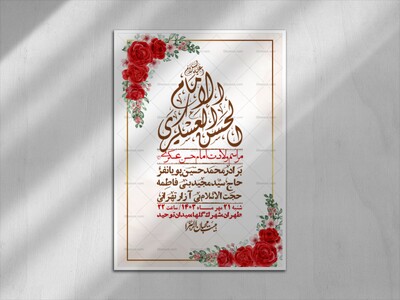 الامام
الحسن العسکری
مراسم ولادت امام حسن عسکری
برادر محمدحسین پویانفر
حاج سید مجید بنی فاطمه
حجت الاسلام بی آزار تهرانی
شنبه ۲۱ مهر ماه ۱۴۰۳ / ساعت ۲۲
طهران شهرک گلها میدان توحید